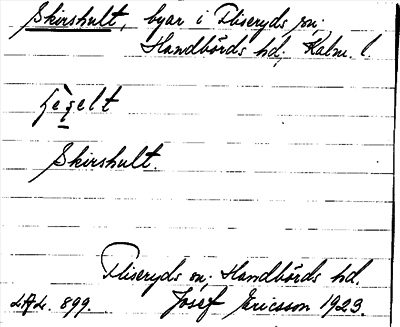 Skirshult, byar i Fliseryds sn;
Handbörds hd; Kalm. l.
Skirshult.
Fliseryds sn; Handbörds hd.
Josef Ericsson 1923.
899.